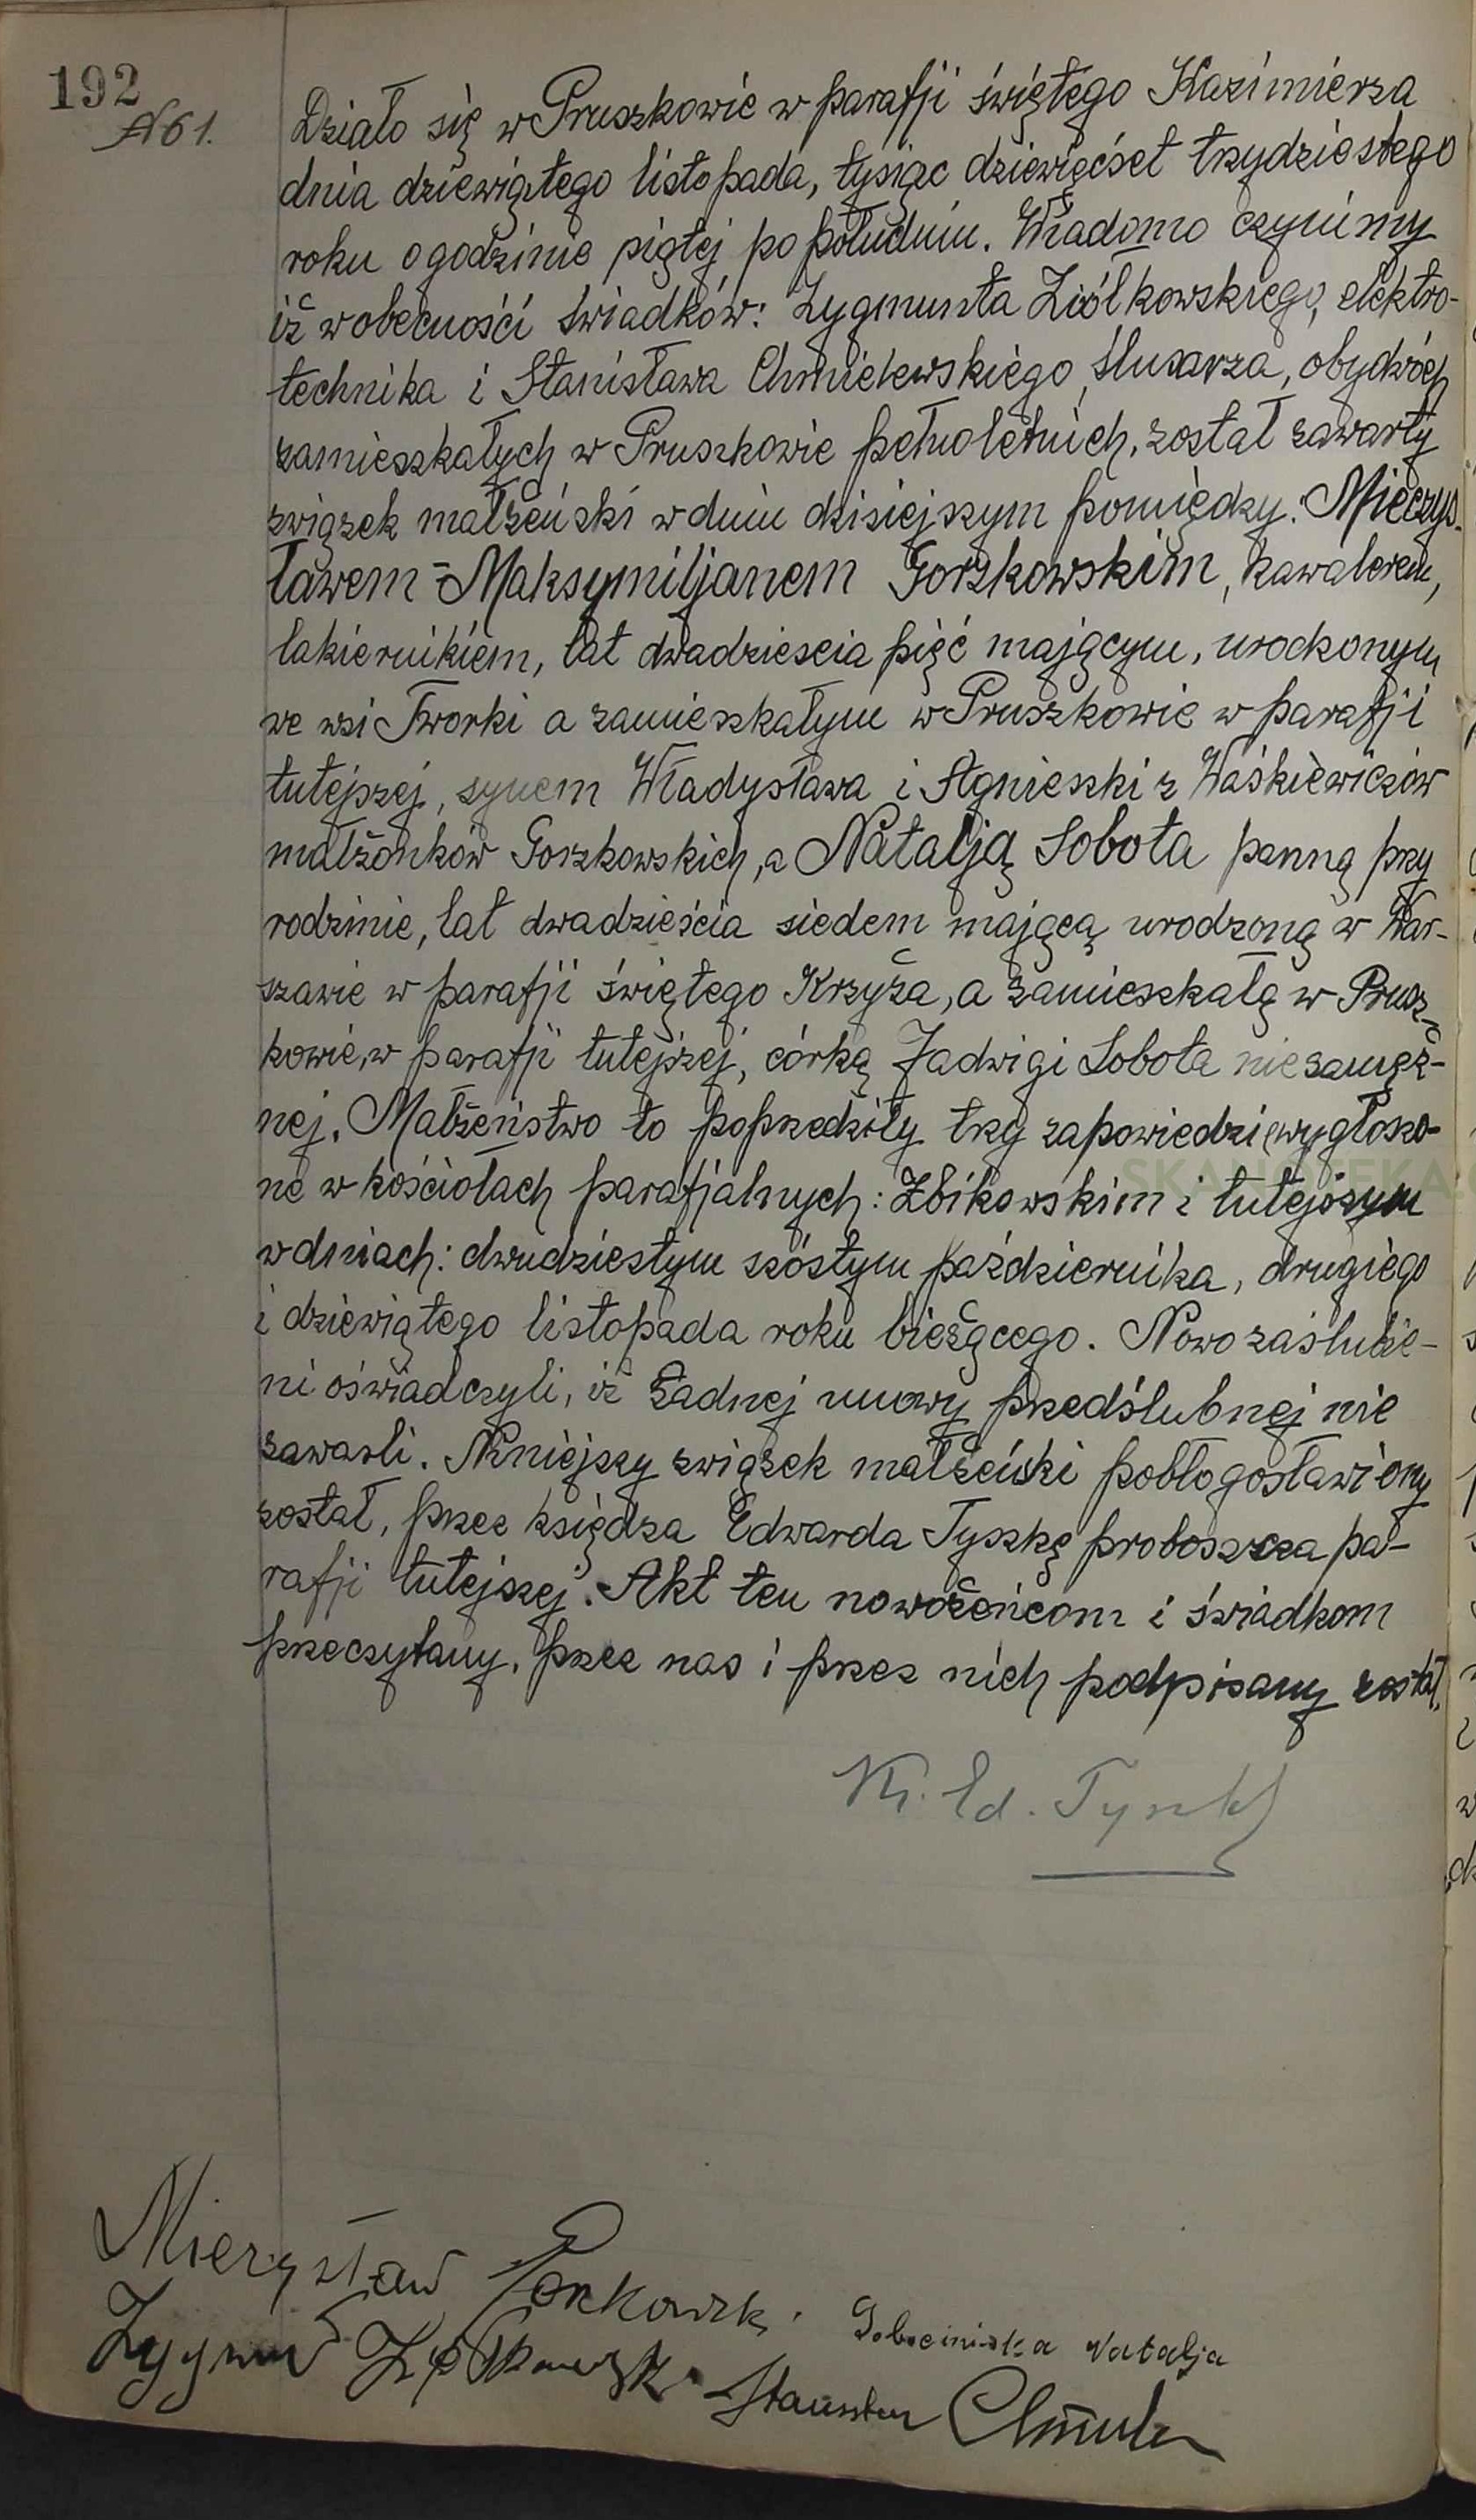 192
№61.
Działo się w Pruszkowie w parafji świętego Kazimierza
dnia dziewiątego listopada, tysiąc dziewięćset trzydziestego
roku o godzinie piątej po południu. Wiadomo czynimy
iż w obecności świadków: Zygmunta Ziółkowskiego, elektro-
technika i Stanisława Chmielewskiego, ślusarza, obydwóch
zamieszkałych w Pruszkowie pełnoletnich, został zawarty
związek małżeński w dniu dzisiejszym pomiędzy: Mieczys-
ławem=Maksymiljanem Gorzkowskim, kawalerem,
lakiernikiem, lat dwadzieścia pięć mającym, urodzonym
we wsi Tworki a zamieszkałym w Pruszkowie w parafji
tutejszej, synem Władysława i Agnieszki z Waśkiewiczów
małżonków Gorzkowskich, a Natalją Sobota panną przy
rodzinie, lat dwadzieścia siedem mającą urodzoną w War-
szawie w parafji świętego Krzyża, a zamieszkałą w Prusz-
kowie, w parafji tutejszej, córką Jadwigi Sobota niezamęż-
nej. Małżeństwo to poprzedziły trzy zapowiedzi wygłoszo-
ne w kościołach parafjalnych: Żbikowskim i tutejszym
w dniach: dwudziestym szóstym października, drugiego
i dziewiątego listopada roku bieżącego. Nowozaślubie-
ni oświadczyli, iż żadnej umowy przedślubnej nie
zawarli. Niniejszy związek małżeński pobłogosławiony
został, przez księdza Edwarda Tyszkę proboszcza pa-
rafji tutejszej. Akt ten nowożeńcom i świadkom
przeczytany, przez nas i przez nich podpisany został.
SKANOTEKA
Ks. Ed. Tyszka
Mieczysław Gorzkowski
Natalja
Zygmunt Ziółkowski
Stanisław